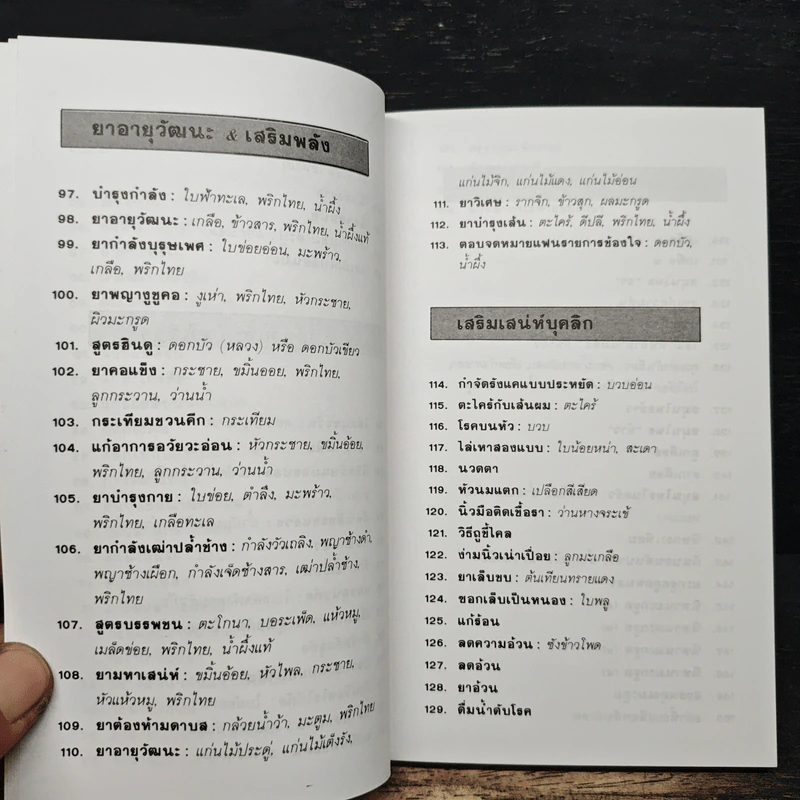 ยาอายุวัฒนะ & เสริมพลัง
97. บำรุงกำลัง : ใบฟ้าทะเล, พริกไทย, น้ำผึ้ง
98. ยาอายุวัฒนะ : เกลือ, ข้าวสาร, พริกไทย, น้ำผึ้งแท้
99. ยากำลังบุรุษเพศ : ใบข่อยอ่อน, มะพร้าว,
เกลือ, พริกไทย
100. ยาพญางูชูคอ : งูเห่า, พริกไทย, หัวกระชาย,
ผิวมะกรูด
101. สูตรฮินดู : ดอกบัว (หลวง) หรือ ดอกบัวเขียว
102. ยาคอแข็ง : กระชาย, ขมิ้นออย, พริกไทย,
ลูกกระวาน, ว่านน้ำ
103. กระเทียมชวนคึก : กระเทียม
104. แก้อาการอวัยวะอ่อน : หัวกระชาย, ขมิ้นอ้อย,
พริกไทย, ลูกกระวาน, ว่านน้ำ
105. ยาบำรุงกาย : ใบข่อย, ตำลึง, มะพร้าว,
พริกไทย, เกลือทะเล
106. ยากำลังเฒ่าปล้ำช้าง : กำลังวัวเถลิง, พญาช้างดำ,
พญาช้างเผือก, กำลังเจ็ดช้างสาร, เฒ่าปล้ำช้าง,
พริกไทย
107. สูตรบรรพชน : ตะโกนา, บอระเพ็ด, แห้วหมู,
เมล็ดข่อย, พริกไทย, น้ำผึ้งแท้
108. ยามหาเสน่ห์ : ขมิ้นอ้อย, หัวไพล, กระชาย,
หัวแห้วหมู, พริกไทย
109. ยาต้องห้ามดาบส : กล้วยน้ำว้า, มะตูม, พริกไทย
110. ยาอายุวัฒนะ : แก่นไม้ประดู่, แก่นไม้เต็งรัง,
แก่นไม้จิก, แก่นไม้แดง, แก่นไม้อ่อน
111. ยาวิเศษ : รากจิก, ข้าวสุก, ผลมะกรูด
112. ยาบำรุงเส้น : ตะไคร้, ดีปลี, พริกไทย, น้ำผึ้ง
113. ตอบจดหมายแฟนรายการข้องใจ : ดอกบัว,
น้ำผึ้ง
เสริมเสน่ห์บุคลิก
114. กำจัดรังแคแบบประหยัด : บวบอ่อน
115. ตะไคร้กับเส้นผม : ตะไคร้
116. โรคบนหัว : บวบ
117. ไล่เหาสองแบบ : ใบน้อยหน่า, สะเดา
118. นวดตา
119. หัวนมแตก : เปลือกสีเสียด
120. นิ้วมือติดเชื้อรา : ว่านหางจระเข้
121. วิธีถูขี้ไคล
122. ง่ามนิ้วเน่าเปื่อย : ลูกมะเกลือ
123. ยาเล็บขบ : ต้นเทียนทรายแดง
124. ซอกเล็บเป็นหนอง : ใบพลู
125. แก้ร้อน
126. ลดความอ้วน : ซังข้าวโพด
127. ลดอ้วน
128. ยาอ้วน
129. ดื่มน้ำดับโรค